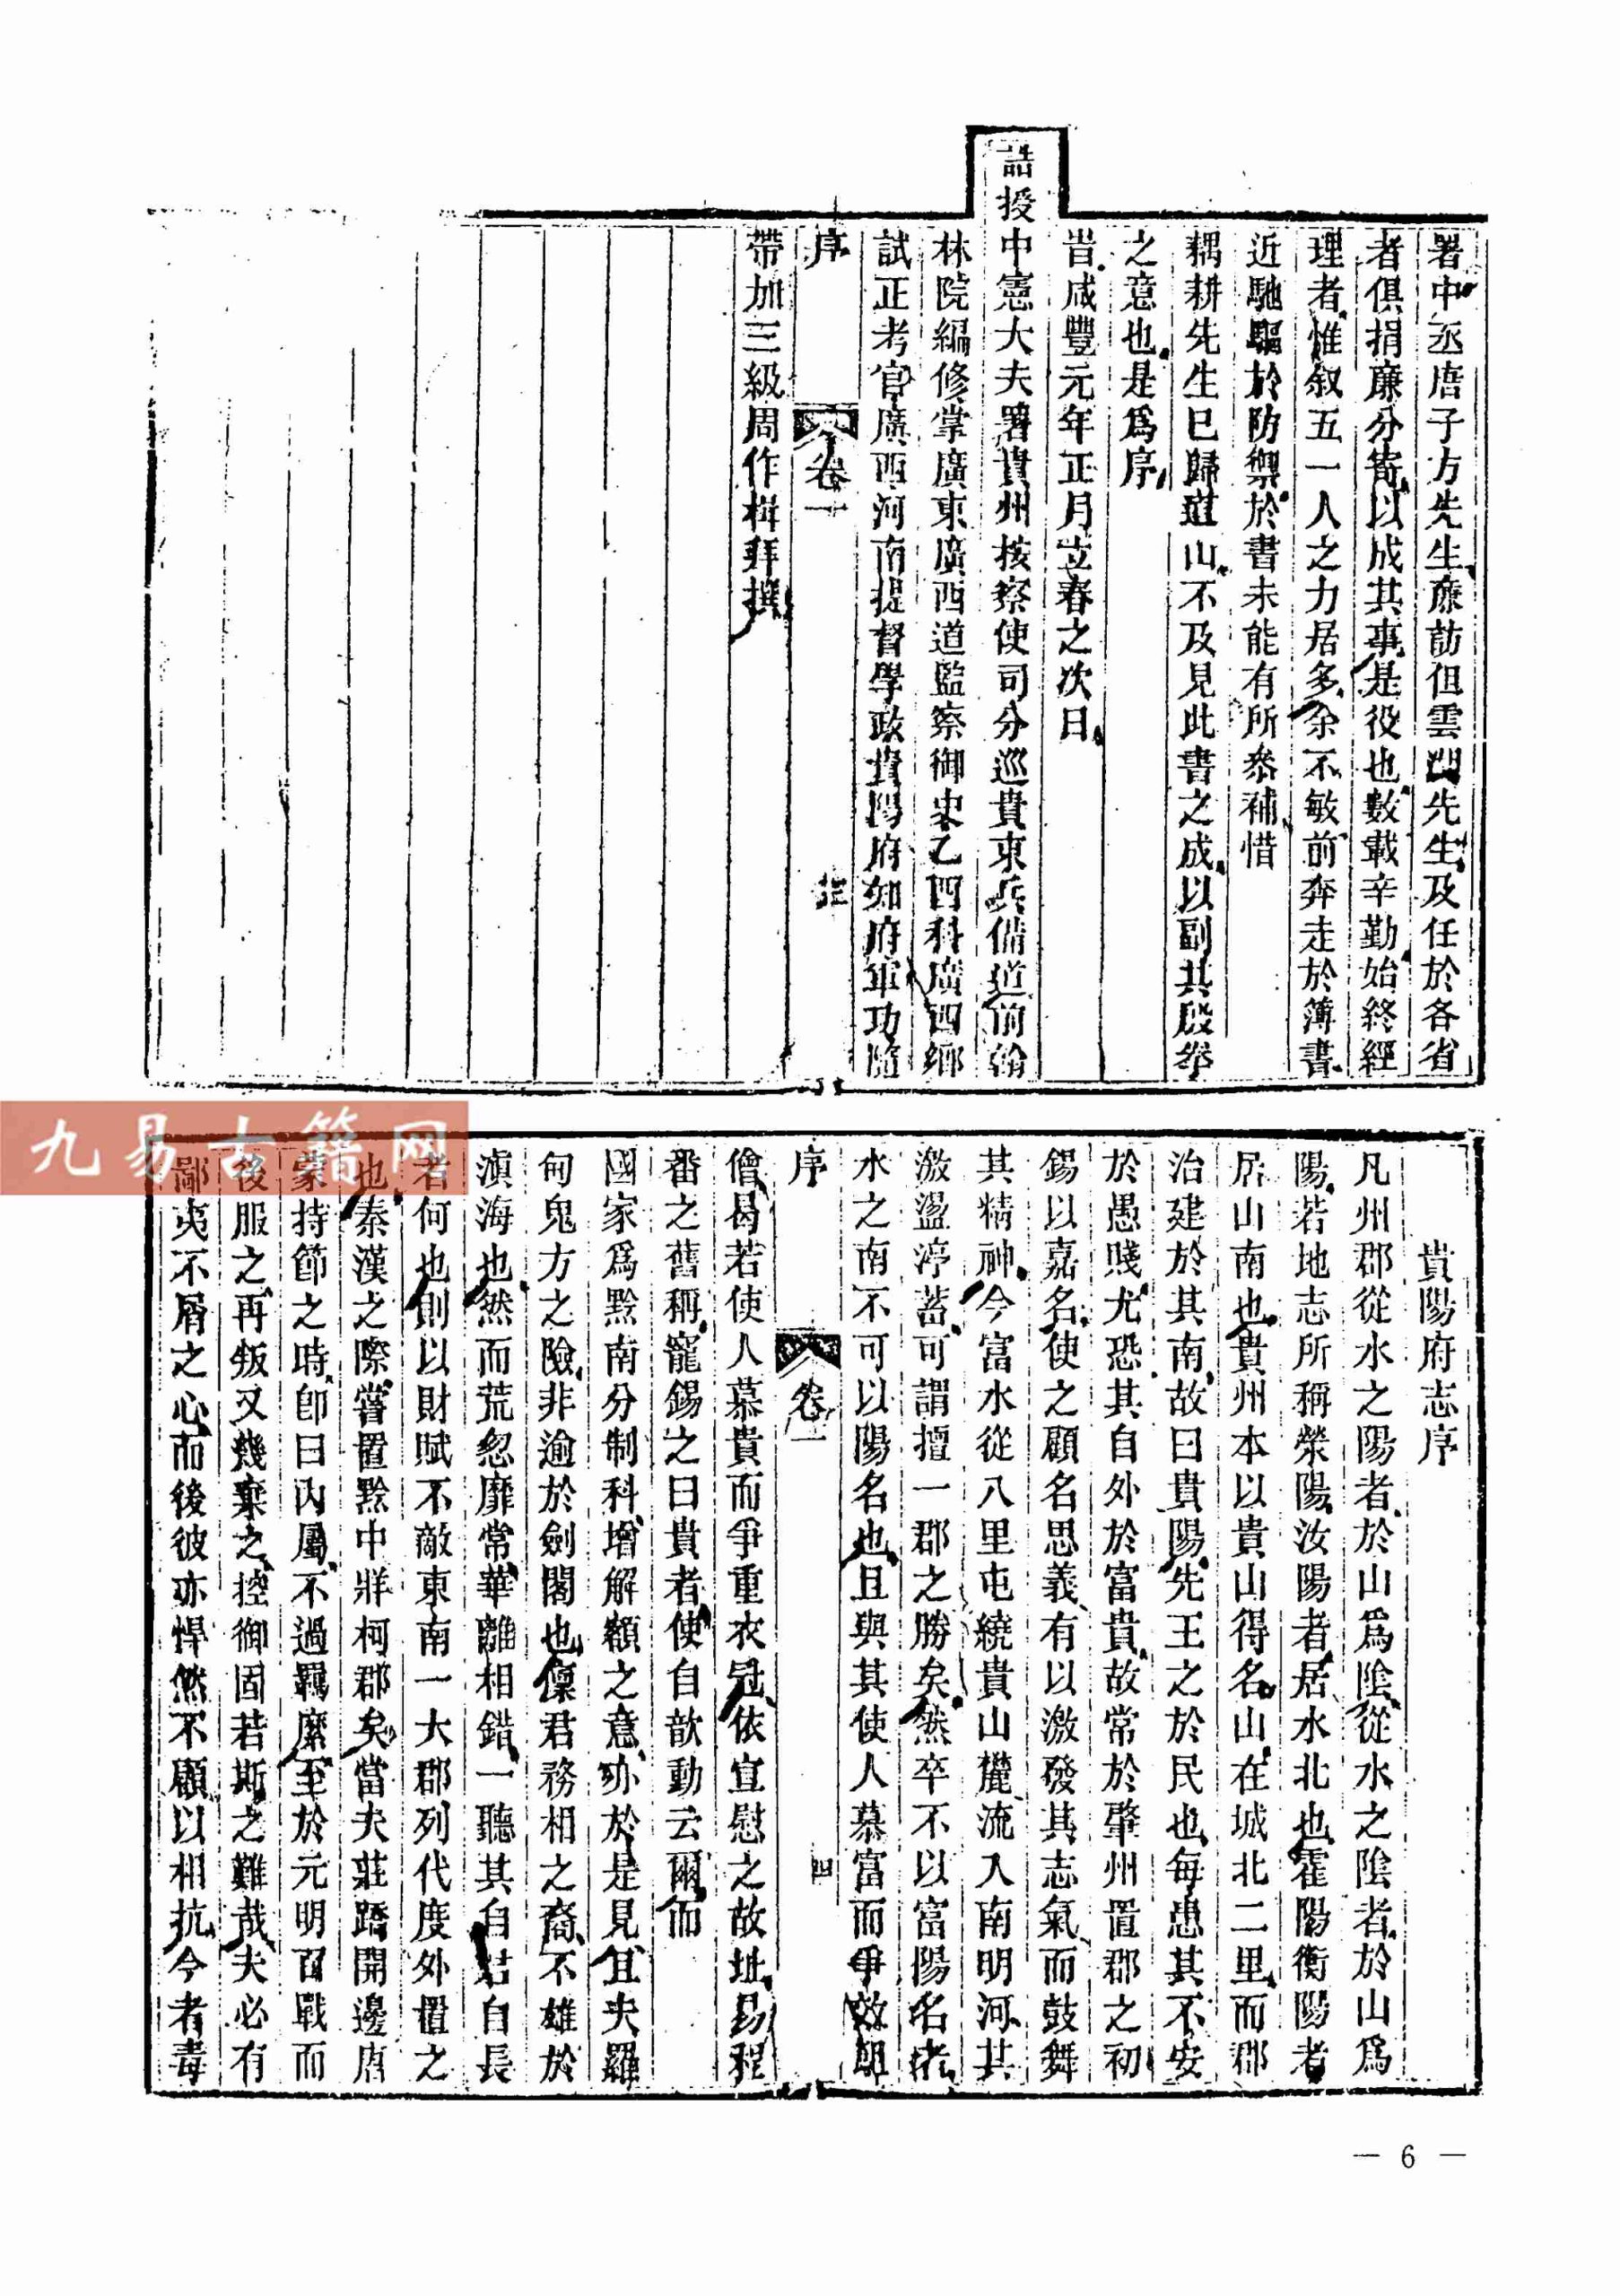 署中丞唐子方先生廉訪但雲湖先生及任於各省
者俱捐廉分寄以成其事是役也數載辛勤始終經
理者惟叙五一人之力居多余不敏前奔走於簿書
近馳驅於防禦於書未能有所叅補惜
耦耕先生已歸道山不及見此書之成以副其殷拳
之意也是爲序
旹咸豐元年正月立春之次日
誥授中憲大夫署貴州按察使司分巡貴東兵備道前翰
林院編修掌廣東廣西道監察御史乙酉科廣西鄉
試正考官廣西河南提督學政貴陽府知府軍功隨
序 卷一
帶加三級周作楫拜撰
貴陽府志序
凡州郡從水之陽者於山爲陰從水之陰者於山爲
陽若地志所稱滎陽汝陽者居水北也霍陽衡陽者
居山南也貴州本以貴山得名山在城北二里而郡
治建於其南故曰貴陽先王之於民也每患其不安
於愚賤尤恐其自外於富貴故常於肇州置郡之初
錫以嘉名使之顧名思義有以激發其志氣而鼓舞
其精神今富水從八里屯繞貴山麓流入南明河其
激盪渟蓄可謂擅一郡之勝矣然卒不以富陽名者
水之南不可以陽名也且與其使人慕富而爭效
序 卷一 四
僧曷若使人慕貴而爭重衣冠依宣慰之故址易程
番之舊稱寵錫之曰貴者使自歆動云爾而
國家爲黔南分制科增解額之意亦於是見且夫羅
甸鬼方之險非逾於劍閣也廩君務相之裔不雄於
滇海也然而荒忽靡常華離相錯一聽其自君自長
者何也則以財賦不敵東南一大郡列代度外置之
也秦漢之際嘗置黔中牂柯郡矣當夫莊蹻開邊唐
蒙持節之時卽曰內屬不過羈縻至於元明百戰而
後服之再叛又幾棄之控御固若斯之難哉夫必有
鄙夷不屑之心而後彼亦悍然不顧以相抗今者毒
— 6 —
九易古籍网